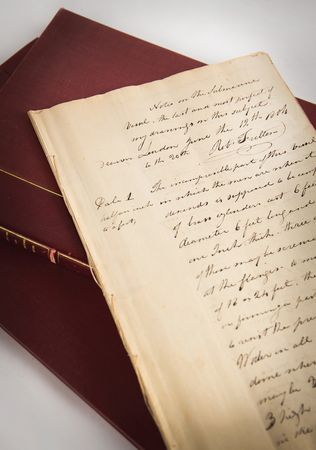 Notes on the Submarine
Vessel, the last and most perfect of
my drawings on this subject
London June the 12th 1804
to the 20th Rob. Fulton
Plate 1 The incompressible part of this vessel
in which the men are when it
descends is supposed to be comp
of brass cylinders cast 6 feet
diameter 6 feet long and
an Inch thick. three
of them may be screwed
at the flanges to
of 18 or 24 feet. the
or forming a per
to resist the pre
Water in all
dome
may be 3
3 high
in the